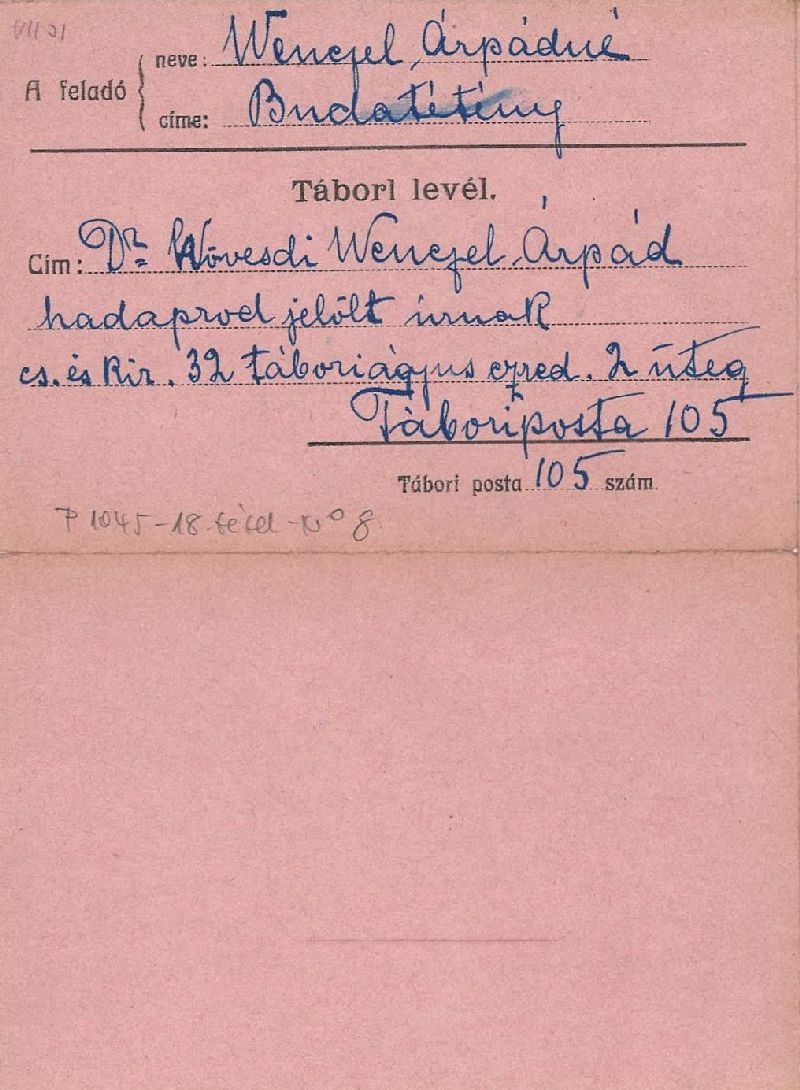 VII 31
A feladó
neve: Wenczel Árpádné
címe: Budatétény
Tábori levél.
Cím: Dr. Kövesdi Wenczel Árpád
hadaprod jelölt úrnak
cs. és Kir. 32 táboriágyus ezred. 2 üteg
Táboriposta 105
Tábori posta 105 szám
P 1045-18 tétel-No 8